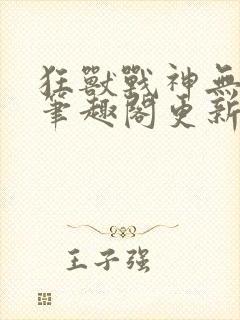 狂獸戰神無
筆趣閣更新
王子强